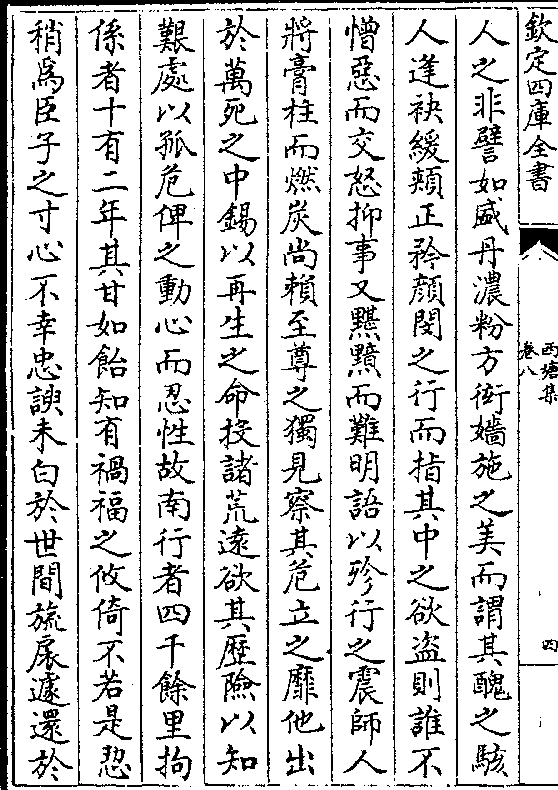 欽定四庫全書
西塘集
卷八
四
人之非譬如盛丹濃粉方衒嬙施之美而謂其醜之駭
人逢袂緩頰正矜顔閔之行而指其中之欲盜則誰不
憎惡而交怒抑事又黮黯而難明語以殄行之震師人
將膏柱而燃炭尚賴至尊之獨見察其危立之靡他出
於萬死之中錫以再生之命投諸荒遠欲其歴險以知
艱處以孤危俾之動心而忍性故南行者四千餘里拘
係者十有二年其甘如飴知有禍福之攸倚不若是恝
稍爲臣子之寸心不幸忠諛未白於世間旒扆遽還於